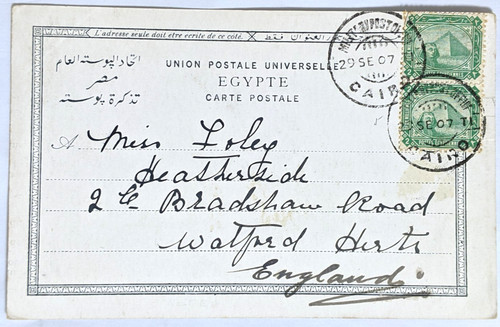 L'adresse seule doit être écrite de ce côté.
اتحاد البوستة العام
مصر
تذكرة بوستة
UNION POSTALE UNIVERSELLE
EGYPTE
CARTE POSTALE
29 SE 07
CAIRO
SE 07
CAIRO
A Miss Foley
Heatherside
Bradshaw Road
Watford Herts
England